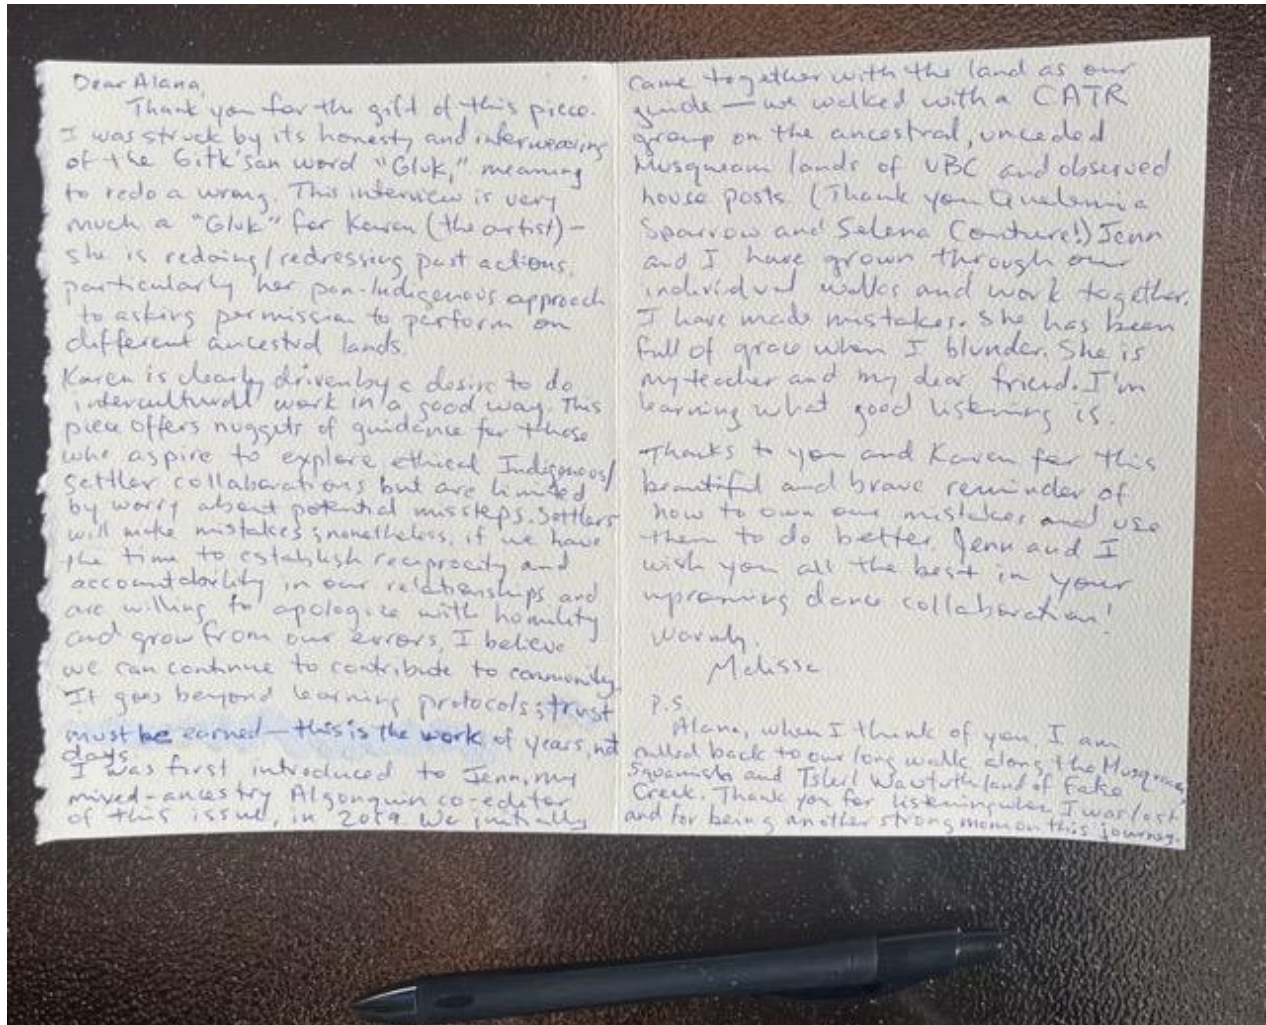 Dear Alana,
Thank you for the gift of this piece.
I was struck by its honesty and interweaving
of the Gitk'san word "Gluk," meaning
to redo a wrong. This interview is very
much a "Gluk" for Karen (the artist) -
she is redoing/redressing past actions,
particularly her pan-Indigenous approach
to asking permission to perform on
different ancestral lands.
Karen is clearly driven by a desire to do
intercultural work in a good way. This
piece offers nuggets of guidance for those
who aspire to explore ethical Indigenous/
settler collaborations but are limited
by worry about potential missteps. Settlers
will make mistakes; nonetheless, if we have
the time to establish reciprocity and
accountability in our relationships and
are willing to apologize with humility
and grow from our errors, I believe
we can continue to contribute to community.
It goes beyond learning protocols; trust
must be earned - this is the work of years, not
days.
I was first introduced to Jenn, my
mixed-ancestry Algonquin co-editor
of this issue, in 2019. We initially
came together with the land as our
guide - we walked with a CATR
group on the ancestral, unceded
Musqueam lands of UBC and observed
house posts. (Thank you
Sparrow and Selena Couture!) Jenn
and I have grown through our
individual walks and work together.
I have made mistakes. She has been
full of grace when I blunder. She is
my teacher and my dear friend. I'm
learning what good listening is.
Thanks to you and Karen for this
beautiful and brave reminder of
how to own our mistakes and use
them to do better. Jenn and I
wish you all the best in your
upcoming dance collaboration!
Warmly,
Melissa
P.S.
Alana, when I think of you, I am
pulled back to our long walk along the Musqueam,
Squamish and Tsleil Waututh land of False
Creek. Thank you for listening when I was lost
and for being another strong mom on this journey.